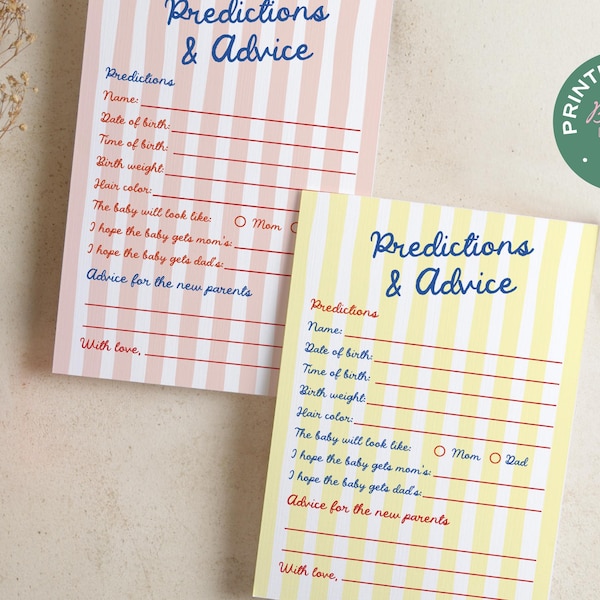 Predictions
& Advice
Predictions
Name:
Date of birth:
Time of birth:
Birth weight:
Hair color:
The baby will look like: Mom
I hope the baby gets mom's:
I hope the baby gets dad's:
Advice for the new parents
With love,
Predictions
& Advice
Predictions
Name:
Date of birth:
Time of birth:
Birth weight:
Hair color:
The baby will look like: Mom Dad
I hope the baby gets mom's:
I hope the baby gets dad's:
Advice for the new parents
With love,